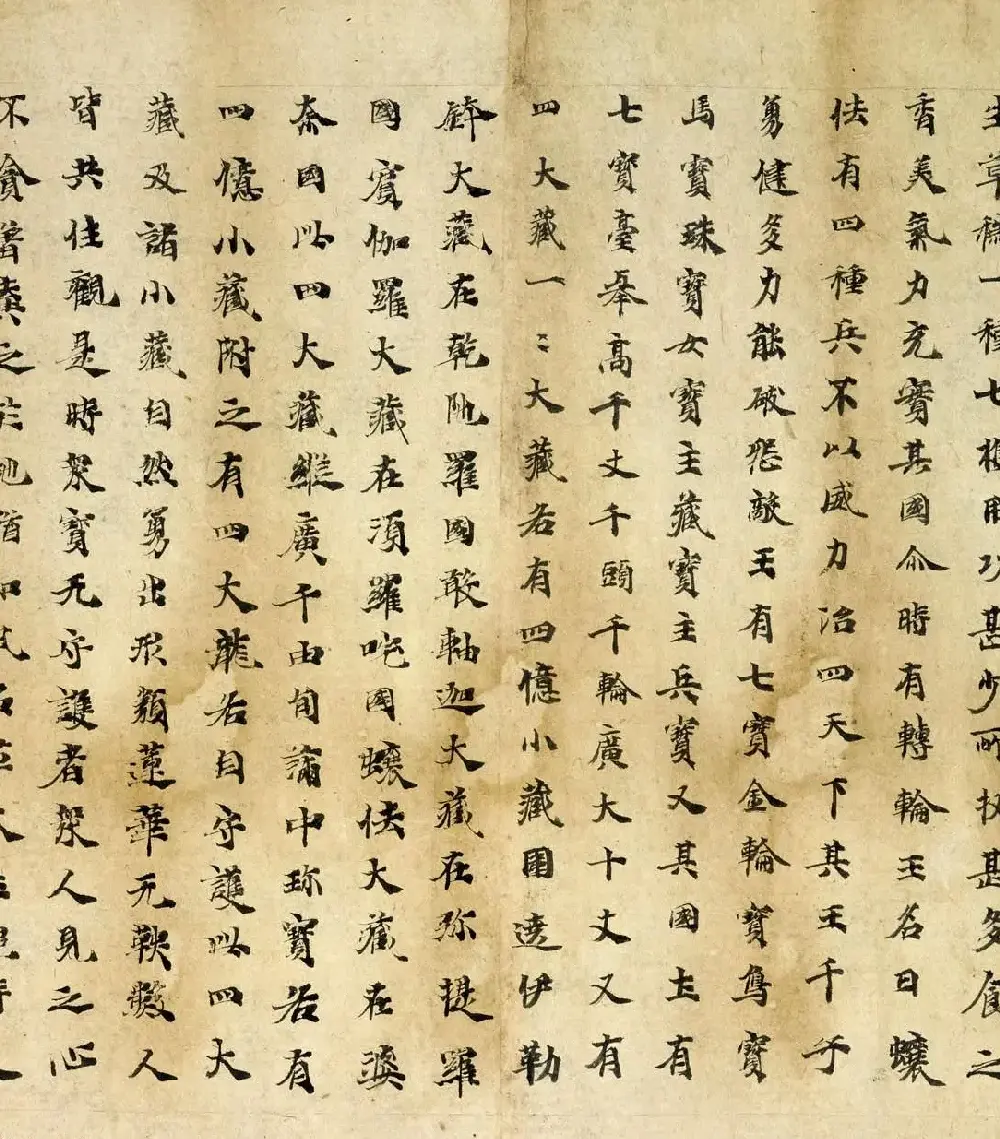 生草穢一種七樹用功甚少所扙甚多食之
香美氣力充實其國尒時有轉輪王名曰蠰
佉有四種兵不以威力治四天下其王千子
勇健多力能破怨敵王有七寶金輪寶鳥寶
馬寶珠寶女寶主藏寶主兵寶又其國土有
七寶臺舉高千丈千頭千輪廣大十丈又有
四大藏一〻大藏各有四億小藏圍遶伊勒
鉢大藏在乾陁羅國敢軸迦大藏在弥提羅
國賓伽羅大藏在湏羅吒國蠰佉大藏在婆
奈國此四大藏縱廣千由旬滿中珎寶各有
四億小藏附之有四大龍各自守護此四大
藏及諸小藏自然勇出形類蓮華无鞅數人
皆共住觀是時衆寶无守護者衆人見之心
不貪著棄之於地猶如瓦石